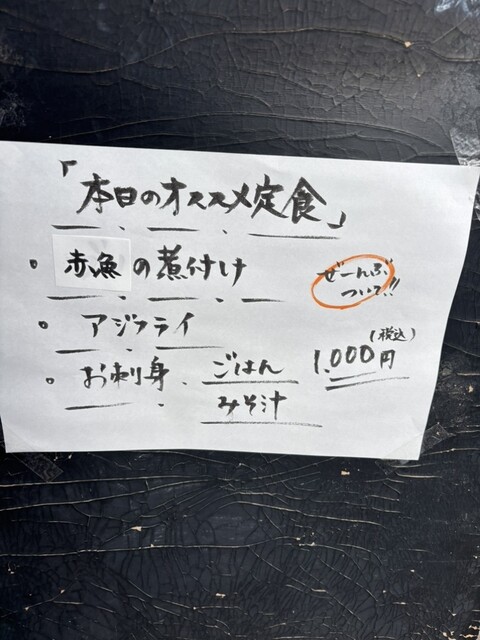 「本日のオススメ定食」
。赤魚の煮付け
ぜーんぶ
ついて!!
。アジフライ
。お刺身、ごはん
みそ汁
(税込)
1,000円